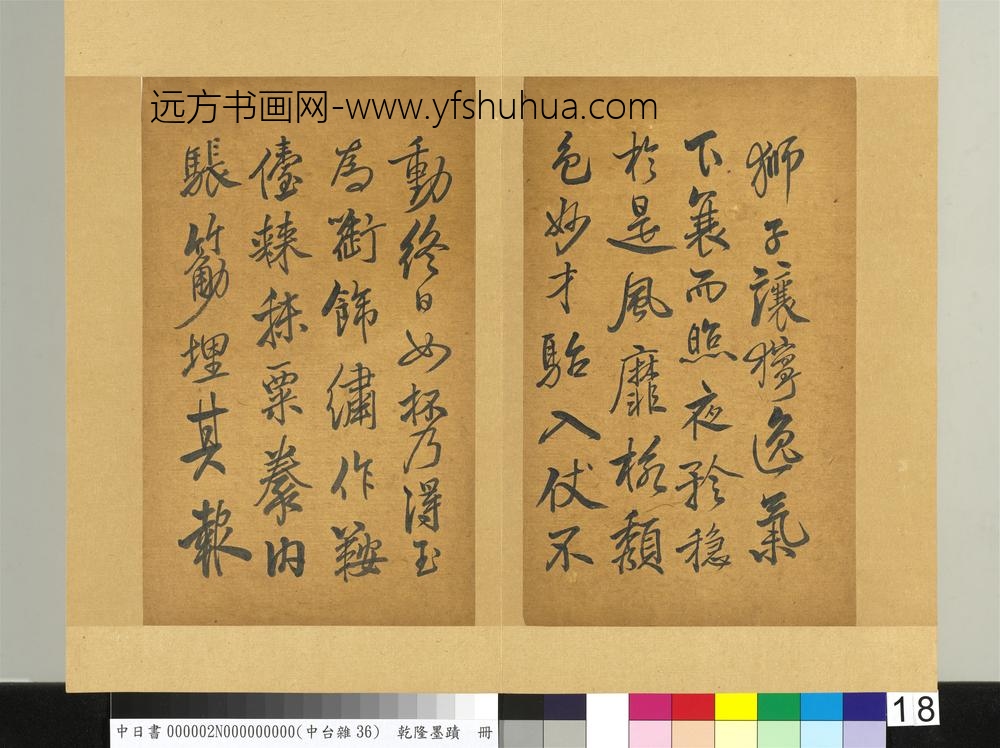 远方书画网-www.yfshuhua.com
獅子讓獰逸氣
下襄而照夜矜穩
於是風靡格頹
色妙才駘入仗不
動終日如杯乃得玉
為銜飾繡作鞍
儓秣粟豢內
駿筋埋其報
中日書 000002N000000000(中台雜36) 乾隆墨蹟 冊
18